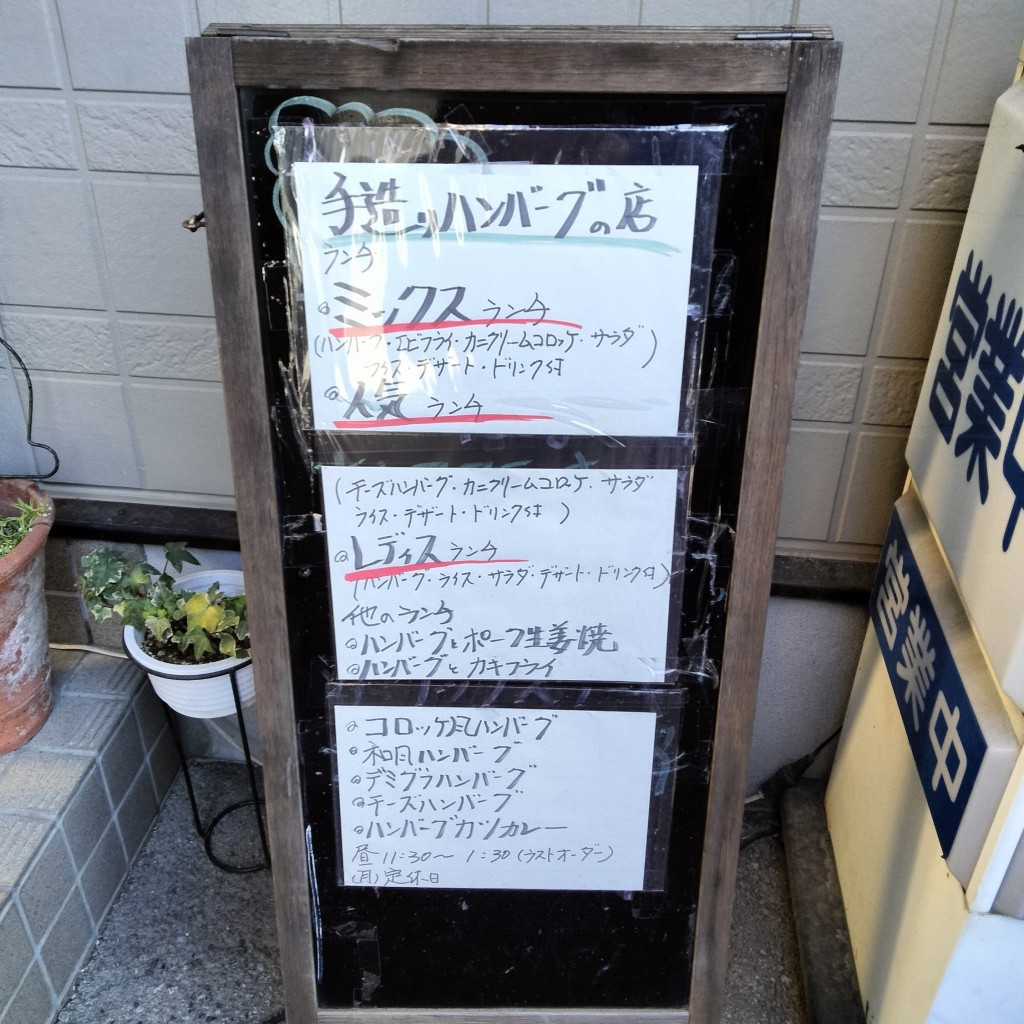 手造りハンバーグの店
ランチ
◎ミックスランチ
(ハンバーグ・エビフライ・カニクリームコロッケ・サラダ
ライス・デザート・ドリンク付)
◎人気ランチ
(チーズハンバーグ・カニクリームコロッケ・サラダ
ライス・デザート・ドリンク付)
◎レディスランチ
(ハンバーグ・ライス・サラダ・デザート・ドリンク付)
他のランチ
◎ハンバーグとポーク生姜焼
◎ハンバーグとカキフライ
◎コロッケ風ハンバーグ
◎和風ハンバーグ
◎デミグラハンバーグ
◎チーズハンバーグ
◎ハンバーグカツカレー
昼11:30〜1:30(ラストオーダー)
(月)定休日
営業中
営業中